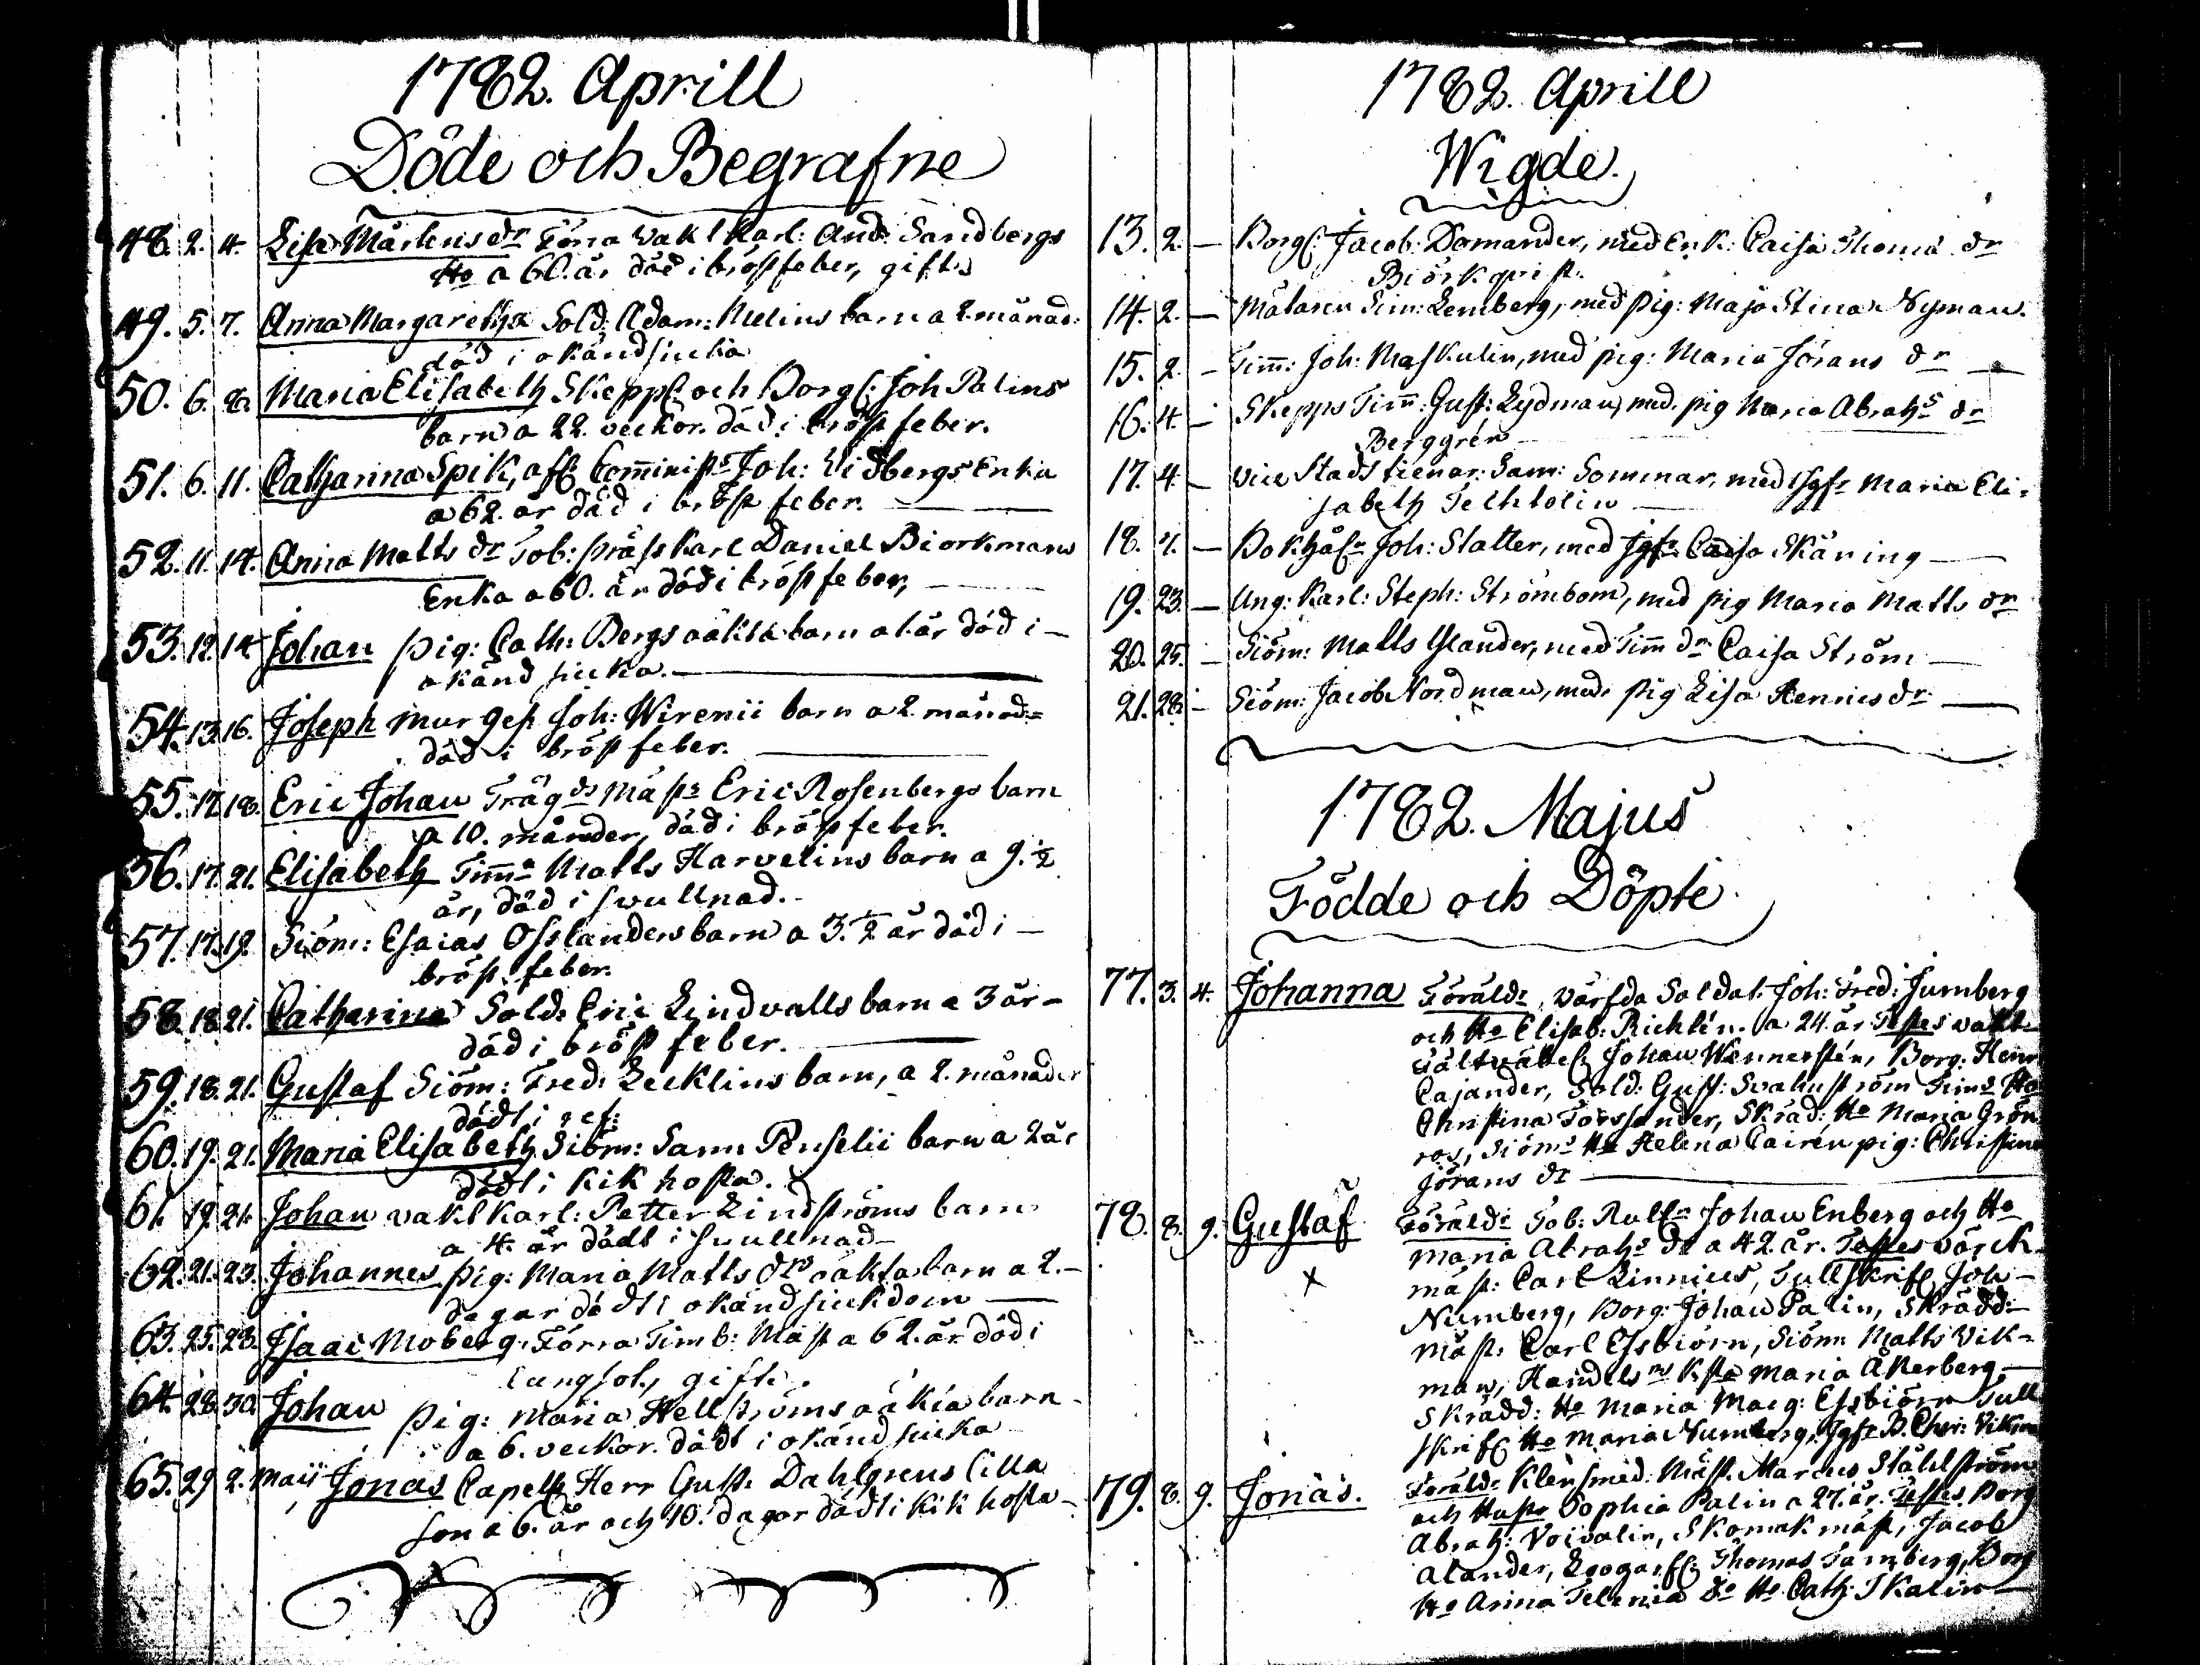 1782. Aprill
Döde och Begrafne
48. 2. 4. Lisa Mårtens dr Förra vakt Karl: And: Sandbergs
Ho a 60. år död i bröstfeber, gift.
49. 5. 7. Anna Margaretha Sold: Adam: Melins barn a 2. månad:
död i okänd siuka
50. 6. 8. Maria Elisabeth Skepp och Borg: Joh Palins
barn a 22. veckor. död i bröstfeber.
51. 6. 11. Catharina Spik, afl Comministr Joh: Widbergs Enka
a 62. år död i bröst feber.
52. 11. 14. Anna Matts dr Tob: präss Karl Daniel Biorkmans
Enka a 60. år död i bröstfeber,
53. 12. 14. Johan pig: Cath: Bergs oäkta barn a 1. år död i
okänd siuka.
54. 13. 16. Joseph mur ges Joh: Wirenii barn a 2. månad:
död i bröstfeber.
55. 17. 18. Eric Johan Trägds Mästr Eric Rosenbergs barn
a 10. månder, död i bröstfeber.
56. 17. 21. Elisabeth Timm Matts Harvelins barn a 9. ½
år, död i svullnad.
57. 17. 19. Siöm: Esaias Osslanders barn a 3. ½ år död i
bröst feber.
58. 18. 21. Catharina Sold: Eric Lindvalls barn a 3 år
död i bröst feber.
59. 18. 21. Gustaf Siöm: Fred: Lecklins barn, a 2. månader
dödt i ref:
60. 19. 21. Maria Elisabeth Siöm: Sam: Penselii barn a 2 år
dödt i kik hosta.
61. 19. 21. Johan vakt karl: Petter Lindströms barn
a 4. år dödt i svullnad
62. 21. 23. Johannes pig: Maria Matts drs oäkta barn a 2.
dagar dödt i okänd siukdom
63. 25. 28. Isaac Moberg. Förra Timb: Mäst a 62. år död i
lungsot, gift.
64. 28. 30. Johan pig: Maria Hellströms oäkta barn
a 6. veckor. dödt i okänd siuka
65. 29 2. Maii Jonas Capell: Herr Gust: Dahlgrens lilla
son a 6. år och 10. dagar dödt i kik hosta
1782. Aprill
Wigde.
13. 2. Borg: Jacob: Domander, med Enk: Caisa Thomæ dr
Biörkqvist.
14. 2. Målaren Sim: Lemberg, med pig: Maja Stina Nyman.
15. 2. Timm: Joh: Maskulin, med pig: Maria Jörans dr
16. 4. Skepps Timm: Gust: Lydman, med pig Maria Abrahs dr
Berggrén
17. 4. Vice Stadstienar: Sam: Sommar, med Jgfr Maria Eli-
sabeth Telktolin
18. 4. Bokhålr Joh: Slatter, med Jgfr Caisa Skäning
19. 23. Ung: Karl: Steph: Strömbom, med pig Maria Matts dr
20. 25. Siöm: Matts Ylander, med Timm dr Caisa Ström
21. 28. Siöm: Jacob Nordman, med pig Lisa Hennes dr
1782. Majus
Födde och Döpte
77. 3. 4. Johanna Föräldr, värfda Soldat. Joh: Fred: Jurnberg
och Ho Elisab: Richtén. a 24. år Testes vakt
Fältväbel Johan Wennerstén, Borg: Henr
Cajander, Sold: Gust: Svahnström Tims Ho
Christina Forssander, Skräd: Ho Maria Grön
ros, Siöms Ho Helena Cairén pig: Christina
Jörans dr
78. 8. 9. Gustaf Föräldr Sob: Rullr Johan Enberg och Ho
Maria Abrahs dr a 42. år. Testes värck
mäst: Carl Linnieus, Tullskrifr Joh
Numberg, Borg: Johan Palin, Skrädd:
mäst: Carl Essbiörn, Siöm: Matts Vik-
man, Handlls ns Ksta Maria Åkerberg,
Skrädd: Ho Maria Marg: Essbiörn Tull
skrifr Ho Maria Numberg, Jgfr B. Chri: Vikma
79. 8. 9. Jonas. Föräldr Klensmed: Mäst. Marcus Ståhlström
och Hustr Sophia Palin a 27. år. Testes Borg
Abrah: Voivalin, Skomak mäst, Jacob
Alander, Thomas Tamberg, Borg
Ho Anna Telenia Do Ho Cath: Skalin